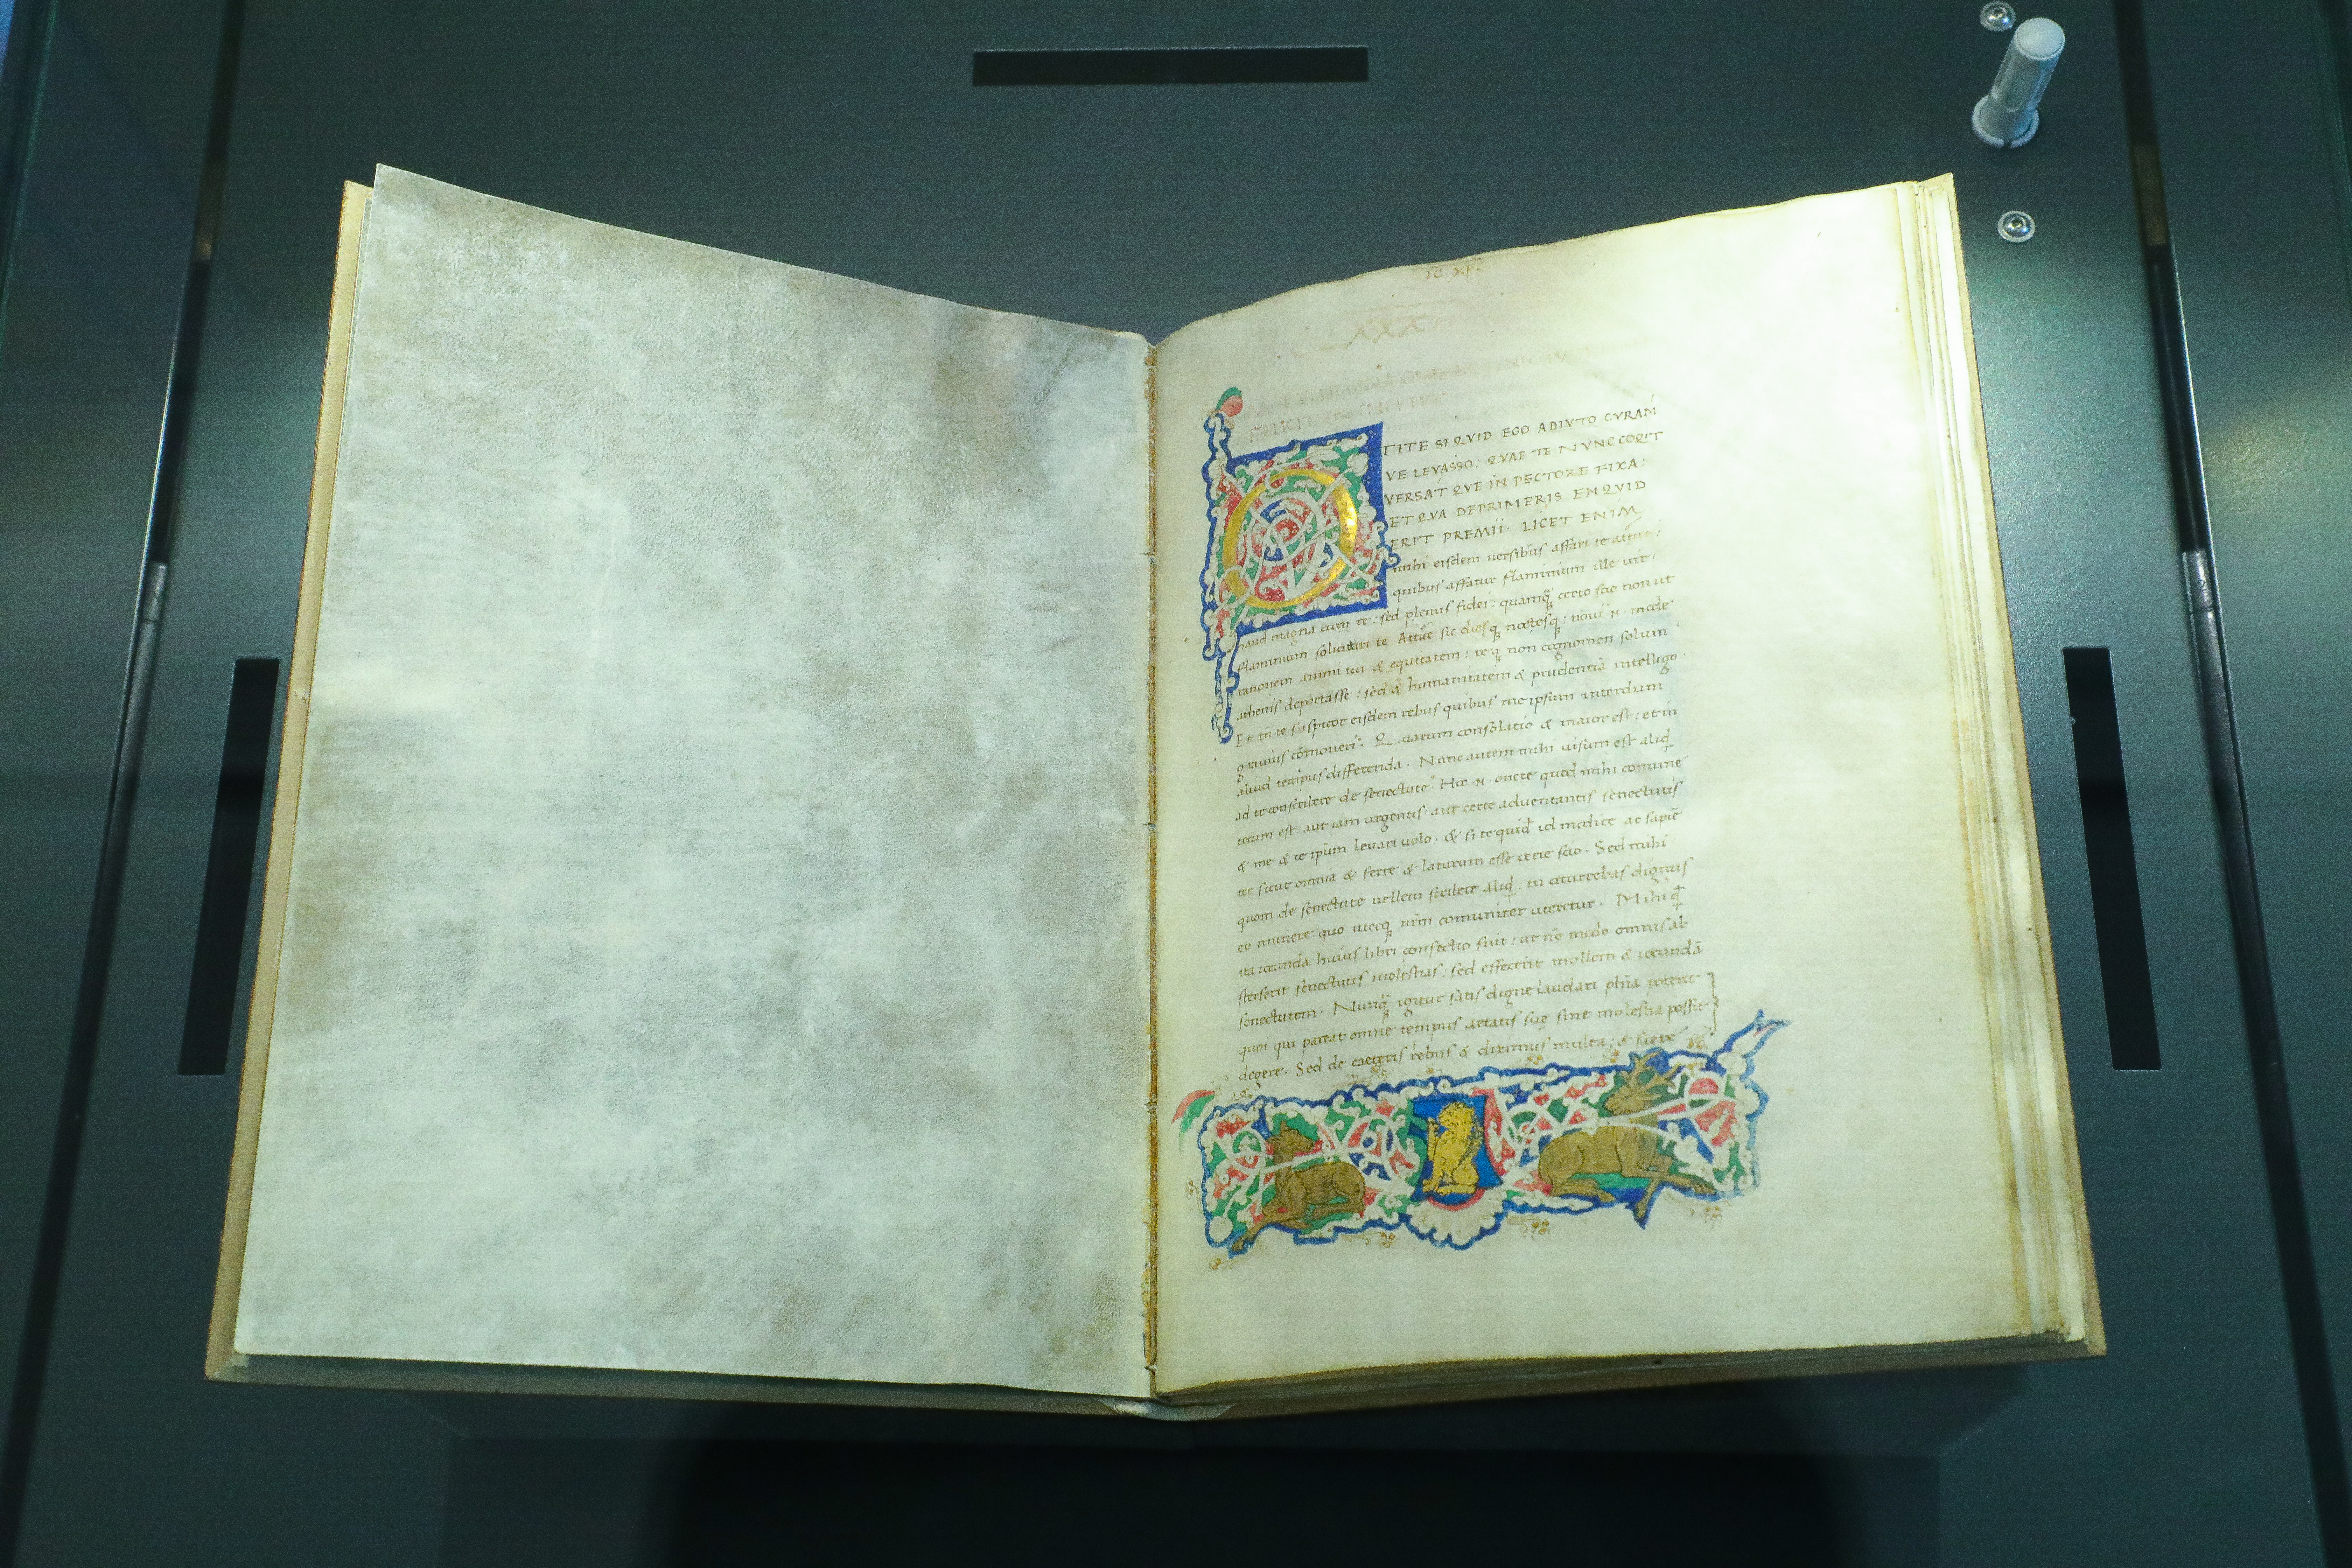 TC XI
CLXXXVI
O TITE SI QVID EGO ADIVTO CVRAM̄
VE LEVASSO: QVAE TE NVNC COQIT
VERSAT QVE IN PECTORE FIXA:
ET QVA DEPRIMERIS EN QVID
ERIT PREMII. LICET ENIM
mihi eisdem versibus affari te attice:
quibus affatur flaminium ille uir
haud magna cum re: sed plenus fidei: quamq̃ certo scio non ut
flaminium solicitari te Attice sic diesq noctesq: noui .N. mode
rationem animi tui & equitatem: teq non cognomen solum
athenis deportasse: sed & humanitatem & prudentiā intelligo.
Et in te suspicor eisdem rebus quibus me ipsum interdum
grauius cōmoueri. Quarum consolatio & maior est: et in
aliud tempus differenda. Nunc autem mihi uisum est aliq̣d
ad te conscribere de senectute. Hoc .N. onere quod mihi comune
tecum est. aut iam urgentis. aut certe aduentantis senectutis
& me & te ipūm leuari uolo. & si te quid id modice ac sapiē
ter sicut omnia & ferre & laturum esse certe scio. Sed mihi
quom de senectute uellem scribere aliq̣d: tu occurrebas dignus
eo munere: quo uterq nr̄m comuniter uteretur. Mihi q̣d
ita iocunda huius libri confectio fuit: ut nō modo omnis ab
sterserit senectutis molestias: sed effecerit mollem & iocundā
senectutem. Nunq̃ igitur satis digne laudari phīa poterit
quoi qui pareat omne tempus aetatis suę sine molestia possit
degere. Sed de caeteris rebus & diximus multa: & saepe